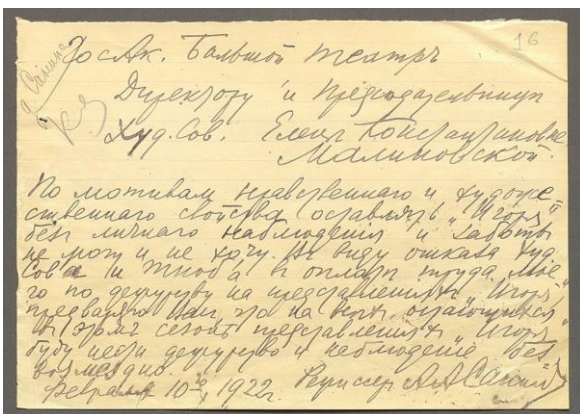 Санина
16
ГосАк. Большой театръ
Директору и Председательнице
Худ. Сов. Елене Константиновне
Малиновской.
По мотивам нравственнаго и художе
ственнаго свойства оставлять „Игоря"
без личнаго наблюденiя и заботы
не могу и не хочу. Въ виду отказа Худ.
Сов'а и в оплате труда мое
го по дежурству на представленiяхъ „Игоря",
предваряю Вам, что на всех остающихся
въ этомъ сезонѣ представленiях „Игоря"
буду нести дежурство и наблюденiе без
возмездно.
Февраля 10, 1922 г. Режиссер А.А. Санин